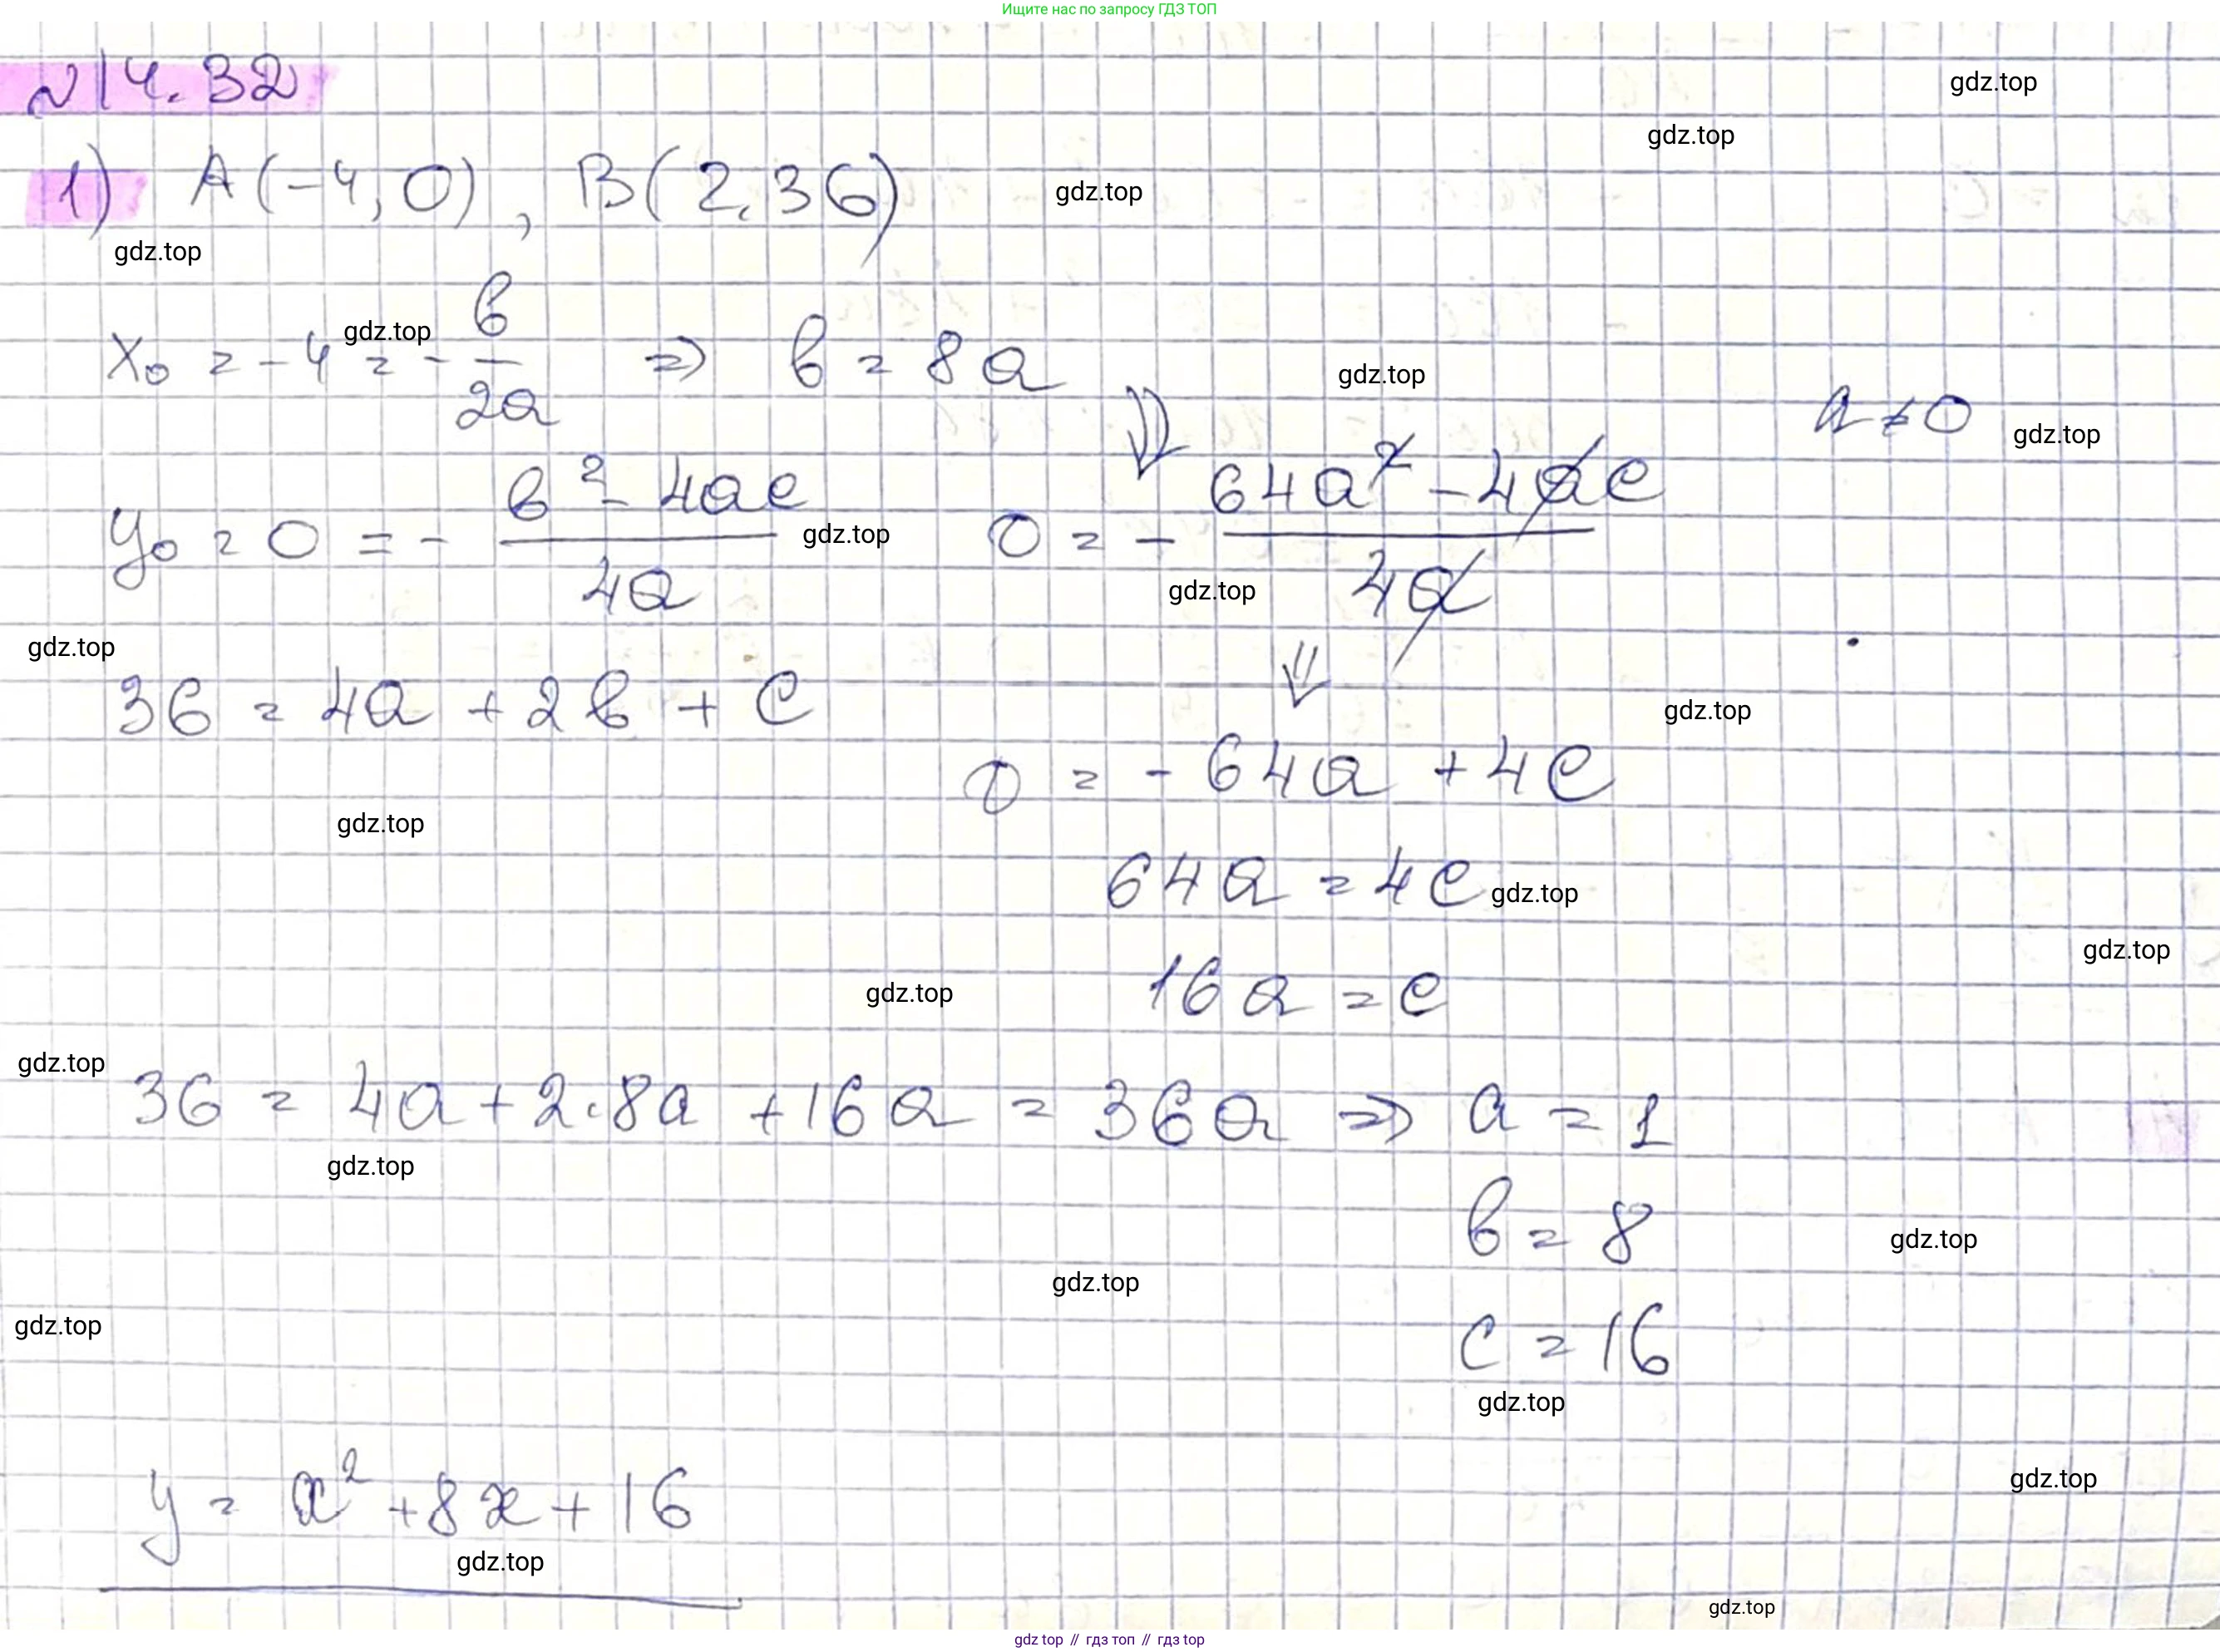 Ищите нас по запросу ГДЗ ТОП
№14.32
gdz.top
gdz.top
1) A(-4; 0), B(2; 36)
gdz.top
gdz.top
x₀ = -4 = -b/2a ⇒ b = 8a
gdz.top
gdz.top
a ≠ 0
gdz.top
y₀ = 0 = - (b² - 4ac)/4a
gdz.top
⇓
0 = - (64a² - 4ac)/4a
gdz.top
gdz.top
36 = 4a + 2b + c
⇓
gdz.top
0 = -64a + 4c
gdz.top
64a = 4c
gdz.top
gdz.top
16a = c
gdz.top
gdz.top
36 = 4a + 2·8a + 16a = 36a ⇒ a = 1
gdz.top
b = 8
gdz.top
gdz.top
gdz.top
c = 16
gdz.top
y = x² + 8x + 16
gdz.top
gdz.top
gdz.top
gdz top // гдз топ // гдз top